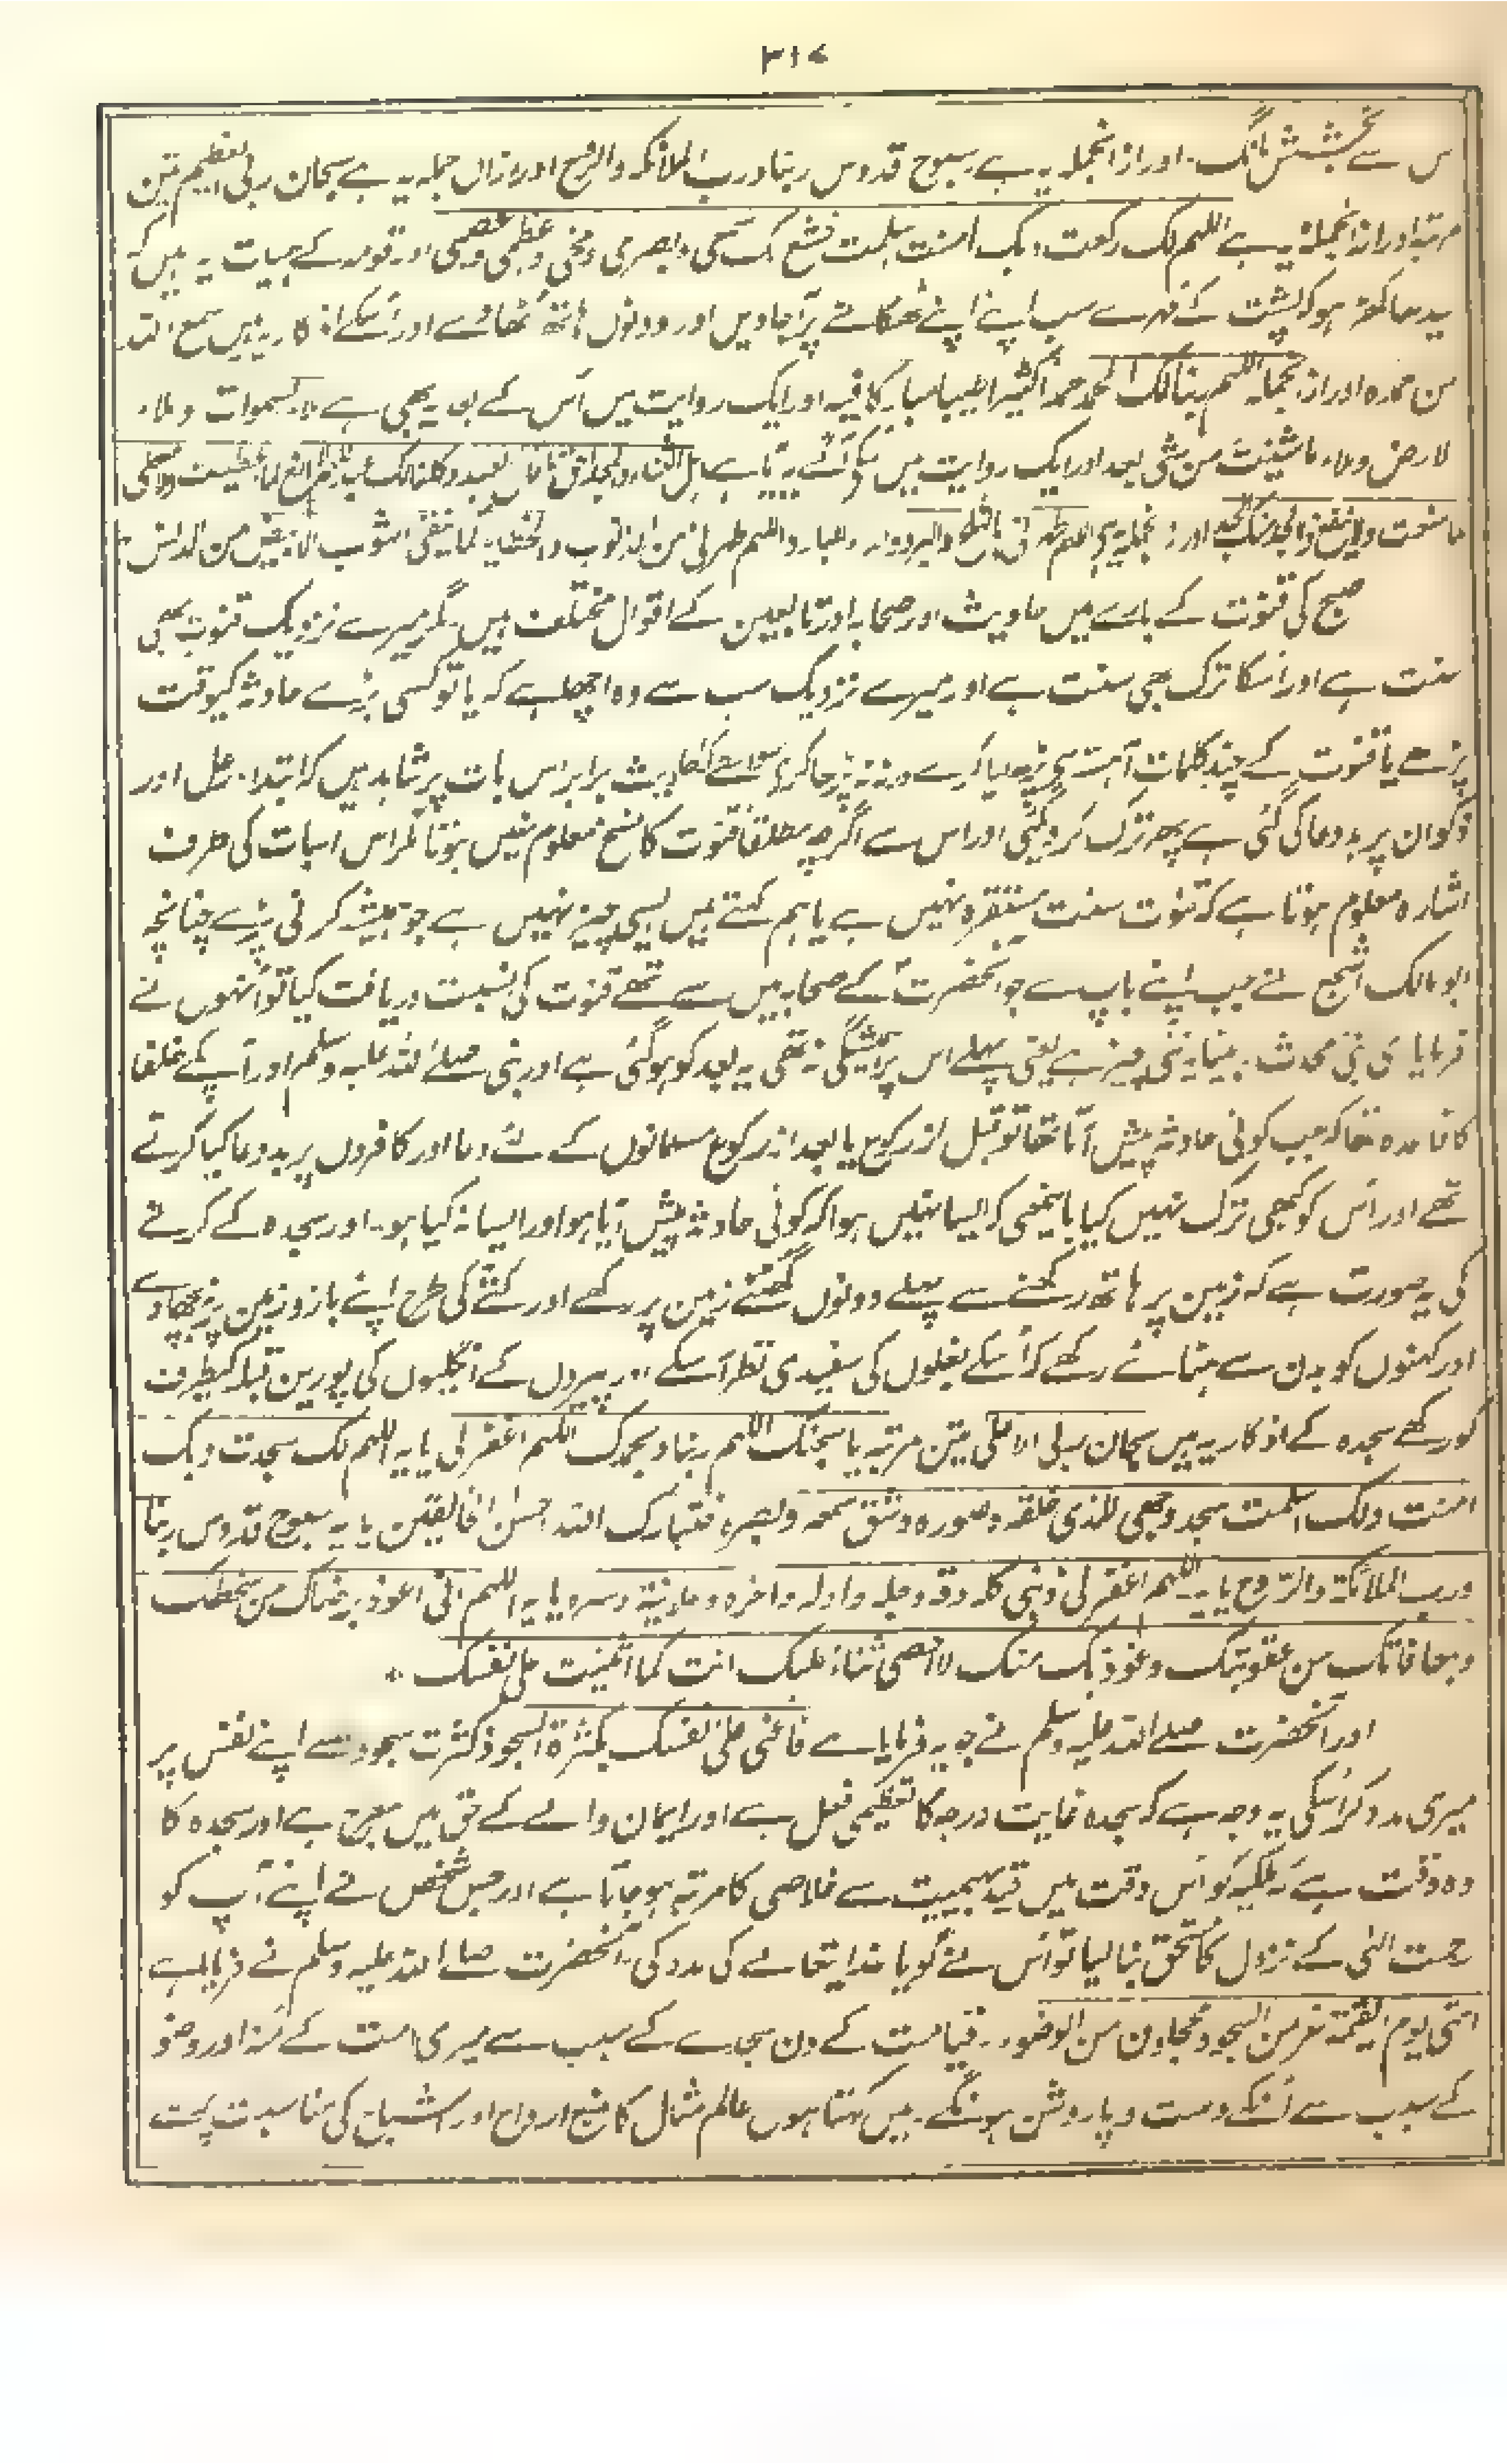 ۳۱۷
س سے بخشش مانگ۔ اور از انجملہ یہ ہے سبوح قدوس ربنا ورب الملائکہ والروح اور ازاں جملہ یہ ہے سبحان ربی العظیم تین
مرتبہ اور از انجملہ یہ ہے اللہم لک رکعت وبک امنت ولک اسلمت خشع لک سمعی وبصری ومخی وعظمی وعصبی اور قومہ کے ہیات یہ ہیں کہ
سیدھا کھڑا ہو کہ پشت کے مہرے سب اپنے اپنے ٹھکانے پر آجاویں اور دونوں ہاتھ اُٹھائے اور اُسکے اذکار یہ ہیں سمع اللہ
من حمدہ اور از انجملہ اللہم ربنا لک الحمد حمدا کثیرا طیبا مبارکا فیہ اور ایک روایت میں اُس کے بعد یہ بھی ہے ملاء السموات وملاء
لارض وملاء ماشئت من شئی بعد اور ایک روایت میں اسکے آگے یہ آیا ہے اہل الثناء والمجد احق ما قال العبد وکلنا لک عبد اللہم لا مانع لما اعطیت ولا معطی
ما منعت ولا ینفع ذا الجد منک الجد اور از انجملہ یہ ہے اللہم طہرنی بالثلج والبرد والماء البارد اللہم طہرنی من الذنوب والخطایا کما ینقی الثوب الابیض من الدنس
صبح کی قنوت کے بارے میں حادیث اور صحابہ اور تابعین کے اقوال مختلف ہیں مگر میرے نزدیک قنوت بھی
سنت ہے اور اُسکا ترک بھی سنت ہے اور میرے نزدیک سب سے وہ اچھا ہے کہ یا تو کسی بڑے حادثہ کیوقت
پڑھے یا قنوت کے چند کلمات آہستہ سے پڑھ لیا کرے ورنہ نہ پڑھا کرے اسواسطے کہ احادیث برابر اس بات پر شاہد ہیں کہ ابتداء رعل اور
ذکوان پر بددعا کی گئی ہے پھر ترک کردیگئی اور اس سے اگرچہ مطلقاً قنوت کا نسخ معلوم نہیں ہوتا مگر اس اسبات کی طرف
اشارہ معلوم ہوتا ہے کہ قنوت سنت مستقرہ نہیں ہے یا ہم کہتے ہیں ایسی چیز نہیں ہے جو ہمیشہ کرنی پڑے چنانچہ
ابو مالک اشجع نے جب اپنے باپ سے جو آنحضرت کے صحابہ میں سے تھے قنوت کی نسبت دریافت کیا تو اُنہوں نے
فرمایا ای بنی محدث۔ بیٹا یہ نئی چیز ہے یعنی پہلے اس پر ہمیشگی نہ تھی یہ بعد کو ہوگئی ہے اور نبی صلے اللہ علیہ وسلم اور آپ کے خلفا
کا قاعدہ تھا کہ جب کوئی حادثہ پیش آتا تھا تو قبل از رکوع یا بعد از رکوع مسلمانوں کے لئے دعا اور کافروں پر بددعا کیا کرتے
تھے اور اُس کو کبھی ترک نہیں کیا بایمعنی کہ ایسا نہیں ہوا کہ کوئی حادثہ پیش آیا ہو اور ایسا نہ کیا ہو۔ اور سجدہ کے کرنے
کی یہ صورت ہے کہ زمین پر ہاتھ رکھنے سے پہلے دونوں گھٹنے زمین پر رکھے اور کتے کی طرح اپنے بازو زمین پر نہ بچھاوے
اور کہنیوں کو بدن سے ہٹائے رکھے کہ اُسکے بغلوں کی سفیدی نظر آسکے اور پیروں کے انگلیوں کی پورین قبلہ کیطرف
کو رکھے سجدہ کے اذکار یہ ہیں سبحان ربی الاعلی تین مرتبہ یا سبحنک اللہم ربنا وبحمدک اللہم اغفرلی یا یہ اللہم لک سجدت وبک
امنت ولک اسلمت سجد وجہی للذی خلقہ وصورہ وشق سمعہ وبصرہ فتبارک اللہ احسن الخالقین یا یہ سبوح قدوس ربنا
ورب الملائکۃ والروح یا یہ اللہم اغفرلی ذنبی کلہ دقہ وجلہ واولہ واخرہ وعلانیۃ وسرہ یا یہ اللہم انی اعوذ برضاک من سخطک
وبمعافاتک من عقوبتک واعوذ بک منک لا احصی ثناء علیک انت کما اثنیت علی نفسک *
اور آنحضرت صلے اللہ علیہ وسلم نے جو یہ فرمایا ہے فاعنی علی نفسک بکثرۃ السجود کثرت سجود سے اپنے نفس پر
میری مدد کر اُسکی یہ وجہ ہے کہ سجدہ غایت درجہ کا تعظیمی فعل ہے اور ایمان والے کے حق میں معراج ہے اور سجدہ کا
وہ وقت ہے کہ ملکیہ کو اُس وقت میں قید بہیمیت سے خلاصی کا مرتبہ ہوجاتا ہے اور جس شخص نے اپنے آپ کو
رحمت الٰہی کے نزول کا مستحق بنا لیا تو اُس نے گویا خدا یتعالے کی مدد کی۔ آنحضرت صلے اللہ علیہ وسلم نے فرمایا ہے
امتی یوم القیمۃ غر من السجود محجلون من الوضوء۔ قیامت کے دن سجدے کے سبب سے میری امت کے منہ اور وضو
کے سبب سے اُنکے دست وپا روشن ہونگے۔ میں کہتا ہوں عالم مثال کا منبع ارواح اور اشباح کی مناسبت پر ہے